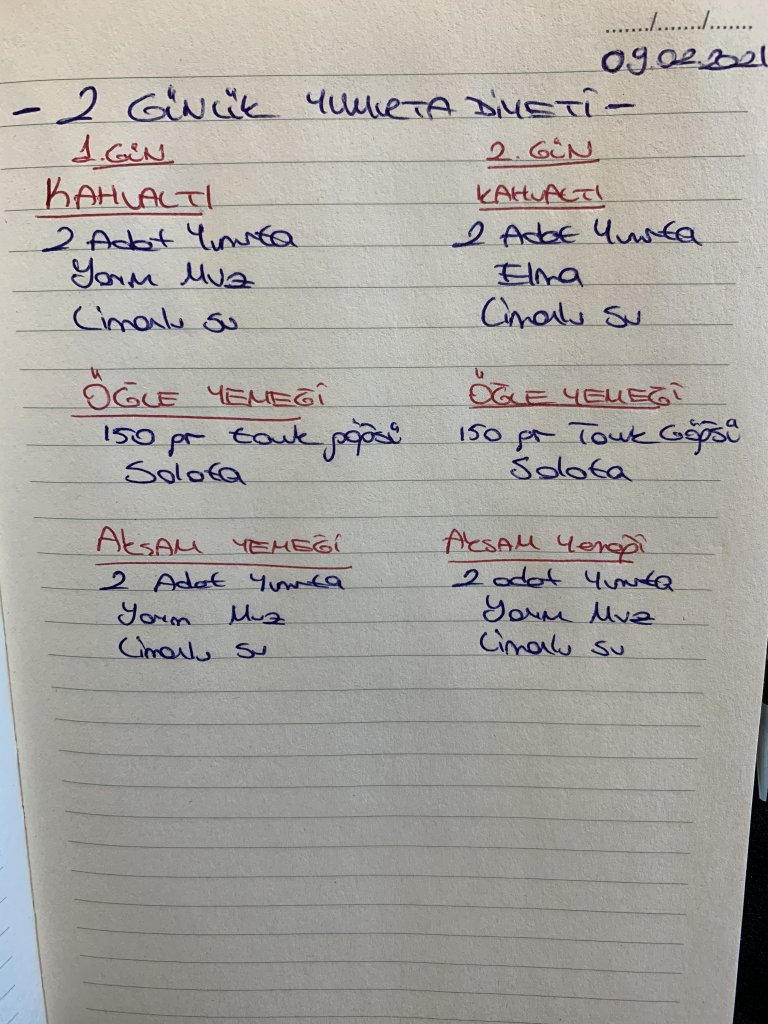 ....../....../......
09.02.2021
- 2 GÜNLÜK YUMURTA DİYETİ -
1. GÜN
KAHVALTI
2 Adet Yumurta
Yarım Muz
Limonlu su
ÖĞLE YEMEĞİ
150 gr tavuk göğsü
Salata
AKŞAM YEMEĞİ
2 Adet Yumurta
Yarım Muz
Limonlu su
2. GÜN
KAHVALTI
2 Adet Yumurta
Elma
Limonlu su
ÖĞLE YEMEĞİ
150 gr Tavuk Göğsü
Salata
AKŞAM Yemeği
2 adet Yumurta
Yarım Muz
Limonlu su